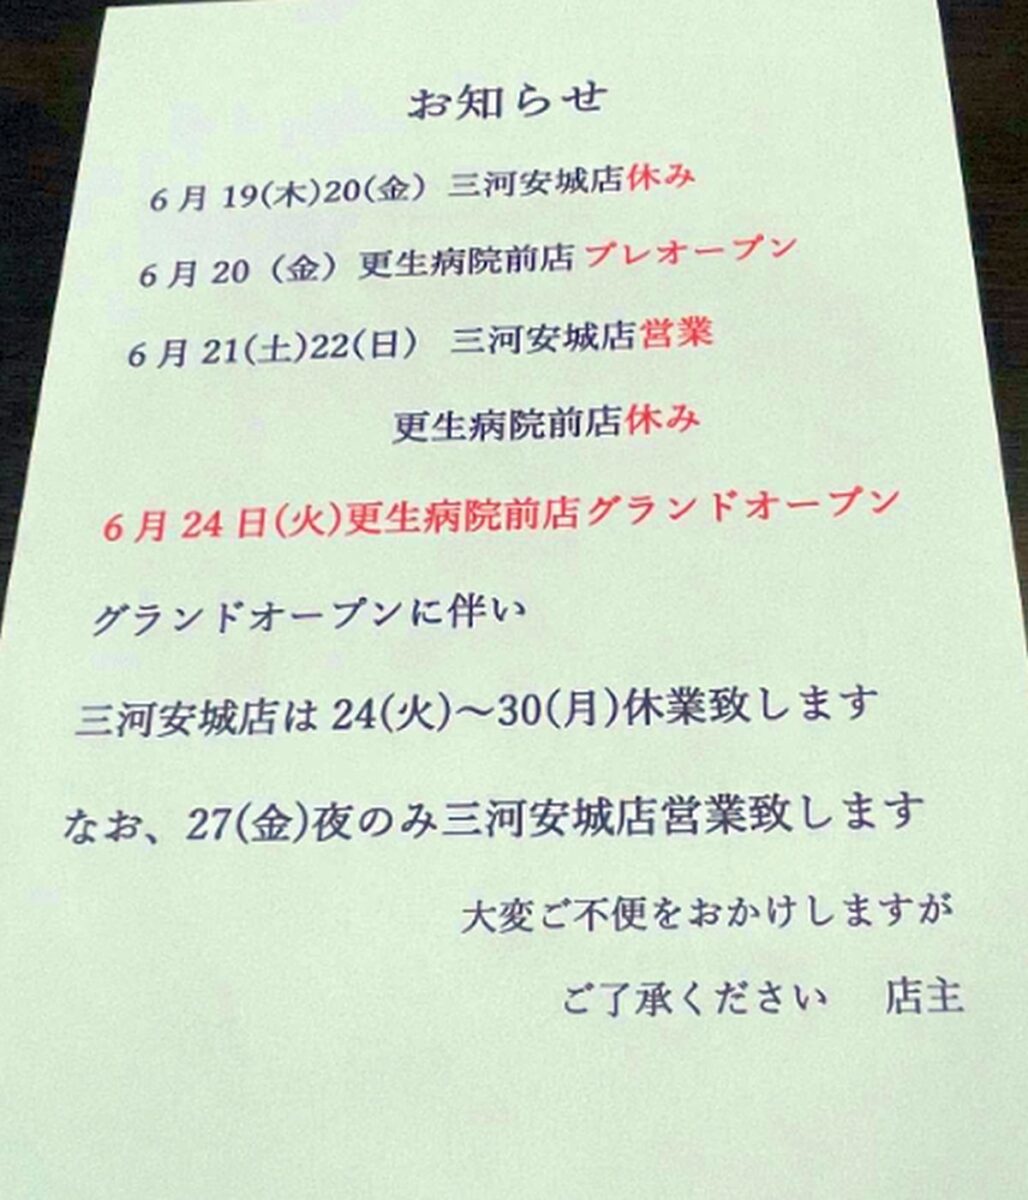 お知らせ
6月19(木)20(金) 三河安城店休み
6月20（金）更生病院前店 プレオープン
6月21(土)22(日) 三河安城店営業
更生病院前店休み
6月24日(火)更生病院前店グランドオープン
グランドオープンに伴い
三河安城店は24(火)～30(月)休業致します
なお、27(金)夜のみ三河安城店営業致します
大変ご不便をおかけしますが
ご了承ください 店主